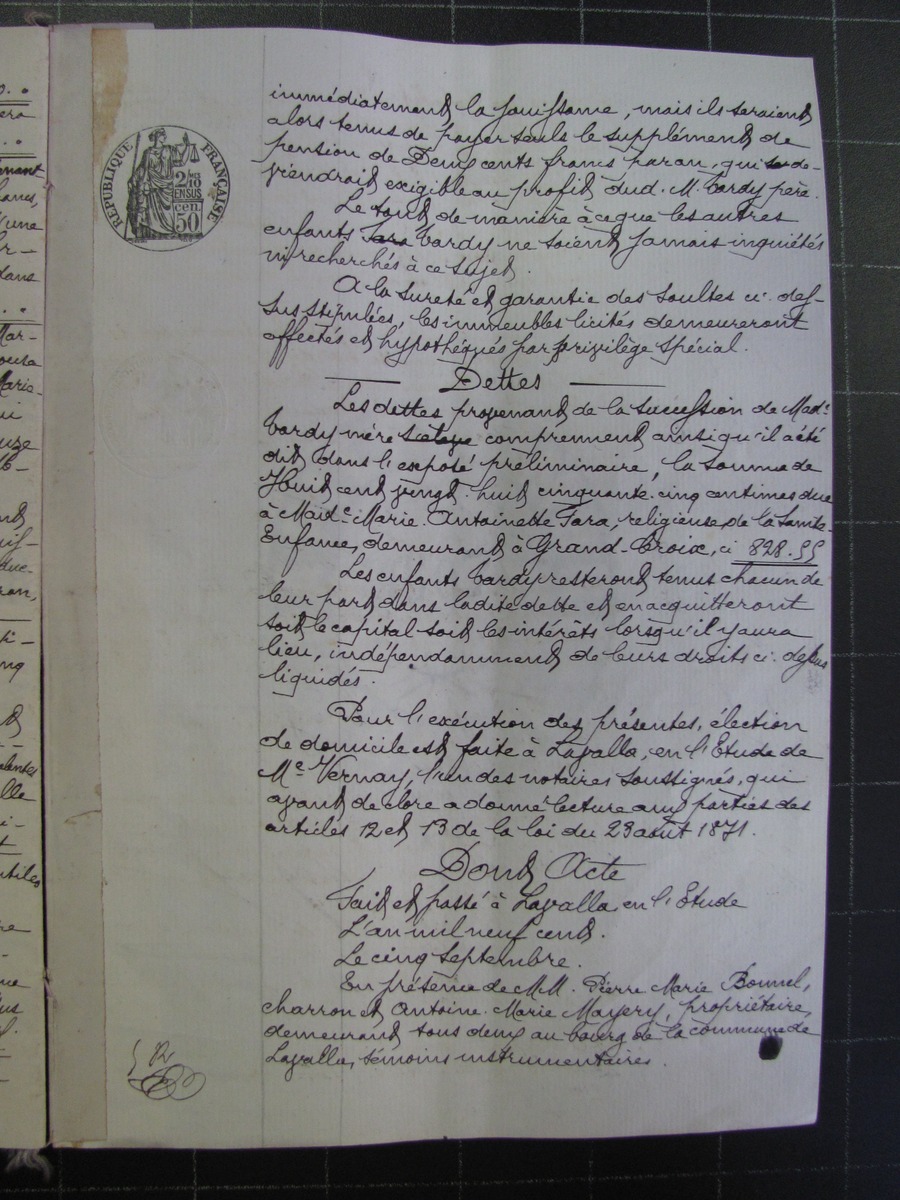 RÉPUBLIQUE FRANÇAISE
2/10
EN SUS
cen.
50
immédiatement la jouissance, mais ils seraient
alors tenus de payer seuls le supplément de
pension de Deux cents francs par an, qui de-
viendrait exigible au profit dud. M. Tardy père.
Le tout de manière à ce que les autres
enfants Tardy ne soient jamais inquiétés
ni recherchés à ce sujet.
A la sureté et garantie des soultes ci-des-
sus stipulées, les immeubles licités demeureront
affectés et hypothéqués par privilège spécial.
Dettes
Les dettes provenant de la succession de Made
Tardy mère comprennent ainsi qu'il a été
dit dans l'exposé préliminaire, la somme de
Huit cent vingt-huit cinquante-cinq centimes due
à Made Marie-Antoinette Fara, religieuse de la Sainte-
Enfance, demeurant à Grand-Croix, ci 828.55
Les enfants Tardy resteront tenus chacun de
leur part dans ladite dette et en acquitteront
soit le capital soit les intérêts lorsqu'il y aura
lieu, indépendamment de leurs droits ci-dessus
liquidés.
Pour l'exécution des présentes, élection
de domicile est faite à Lavalla, en l'Etude de
Me Vernay, l'un des notaires soussignés, qui
avant de clore a donné lecture aux parties des
articles 12 et 13 de la loi du 23 août 1871.
Dont Acte
Fait et passé à Lavalla, en l'Etude
L'an mil neuf cent.
Le cinq Septembre.
En présence de MM. Pierre Marie Bonnel,
charron et Antoine-Marie Mayery, propriétaire,
demeurant tous deux au bourg de la commune de
Lavalla, témoins instrumentaires.